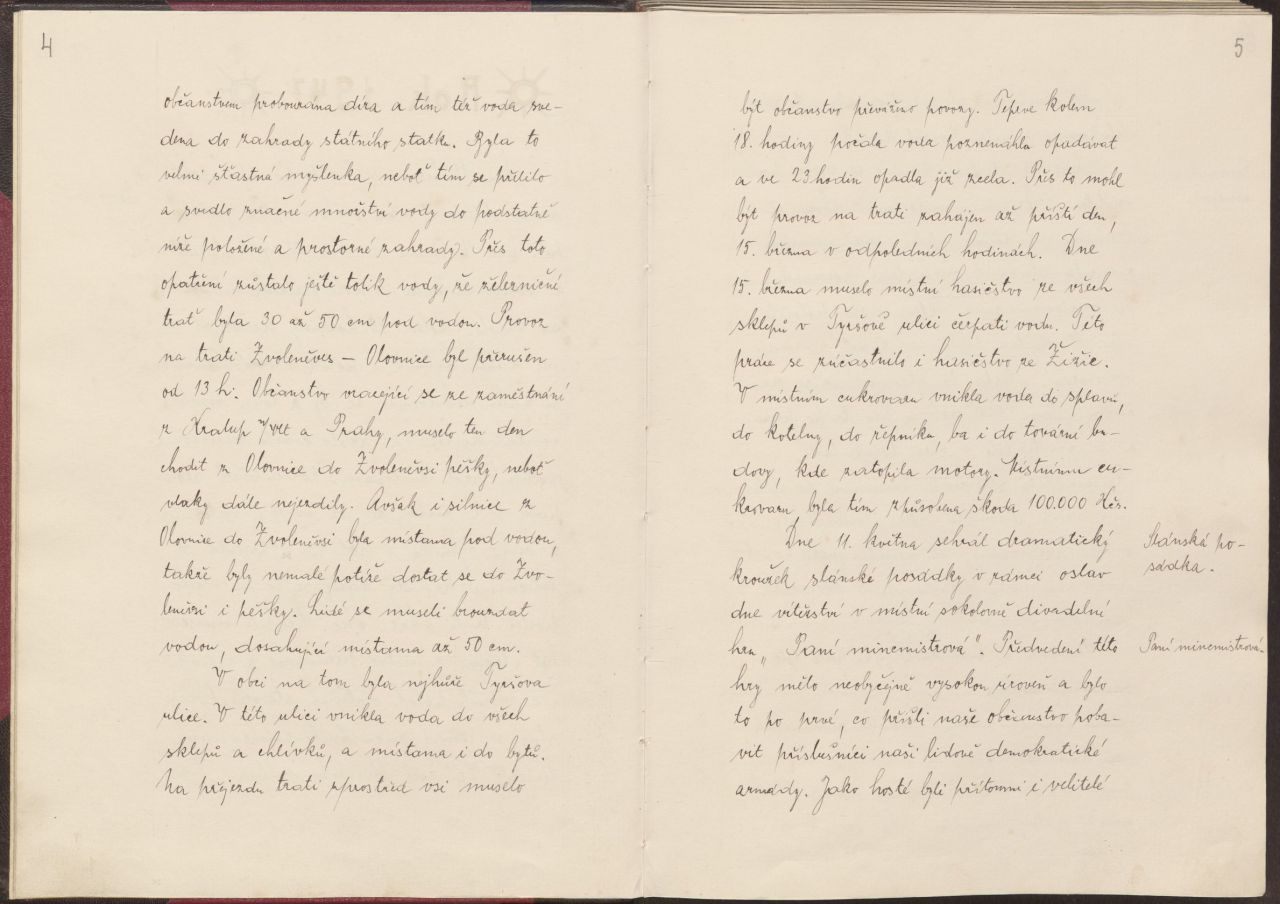 4
občanstvem probourána díra a tím též voda sve-
dena do zahrady státního statku. Byla to
velmi šťastná myšlenka, neboť tím se přililo
a svedlo značné množství vody do podstatně
níže položené a prostorné zahrady. Přes toto
opatření zůstalo ještě tolik vody, že železniční
trať byla 30 až 50 cm pod vodou. Provoz
na trati Zvoleněves – Olovnice byl přerušen
od 13 h. Občanstvo vracející se ze zaměstnání
z Kralup n/Vlt a Prahy, muselo ten den
chodit z Olovnice do Zvoleněvsi pěšky, neboť
vlaky dále nejezdily. Avšak i silnice z
Olovnice do Zvoleněvsi byla místama pod vodou,
takže byly nemalé potíže dostat se do Zvo-
leněvsi i pěšky. Lidé se museli brouzdat
vodou, dosahující místama až 50 cm.
V obci na tom byla nejhůře Tyršova
ulice. V této ulici vnikla voda do všech
sklepů a chlívků, a místama i do bytů.
Na přejezdu trati zprostřed vsi muselo
5
být občanstvo převáženo povozy. Teprve kolem
18. hodiny počala voda poznenáhlu opadávat
a ve 23 hodin opadla již zcela. Přes to mohl
být provoz na trati zahájen až příští den,
15. března v odpoledních hodinách. Dne
15. března muselo místní hasičstvo ze všech
sklepů v Tyršově ulici čerpati vodu. Této
práce se zúčastnilo i hasičstvo ze Žižic.
V místním cukrovaru vnikla voda do splavů,
do kotelny, do řepníku, ba i do tovární bu-
dovy, kde zatopila motory. Místnímu cu-
krovaru byla tím způsobena škoda 100.000 Kčs.
Dne 11. května sehrál dramatický
Slánská po-
sádka.
kroužek slánské posádky v rámci oslav
dne vítězství v místní sokolovně divadelní
hru „Paní mincmistrová". Předvedení této
Paní mincmistrová.
hry mělo neobyčejně vysokou úroveň a bylo
to po prvé, co přišli naše občanstvo poba-
vit příslušníci naší lidově demokratické
armády. Jako hosté byli přítomni i velitelé